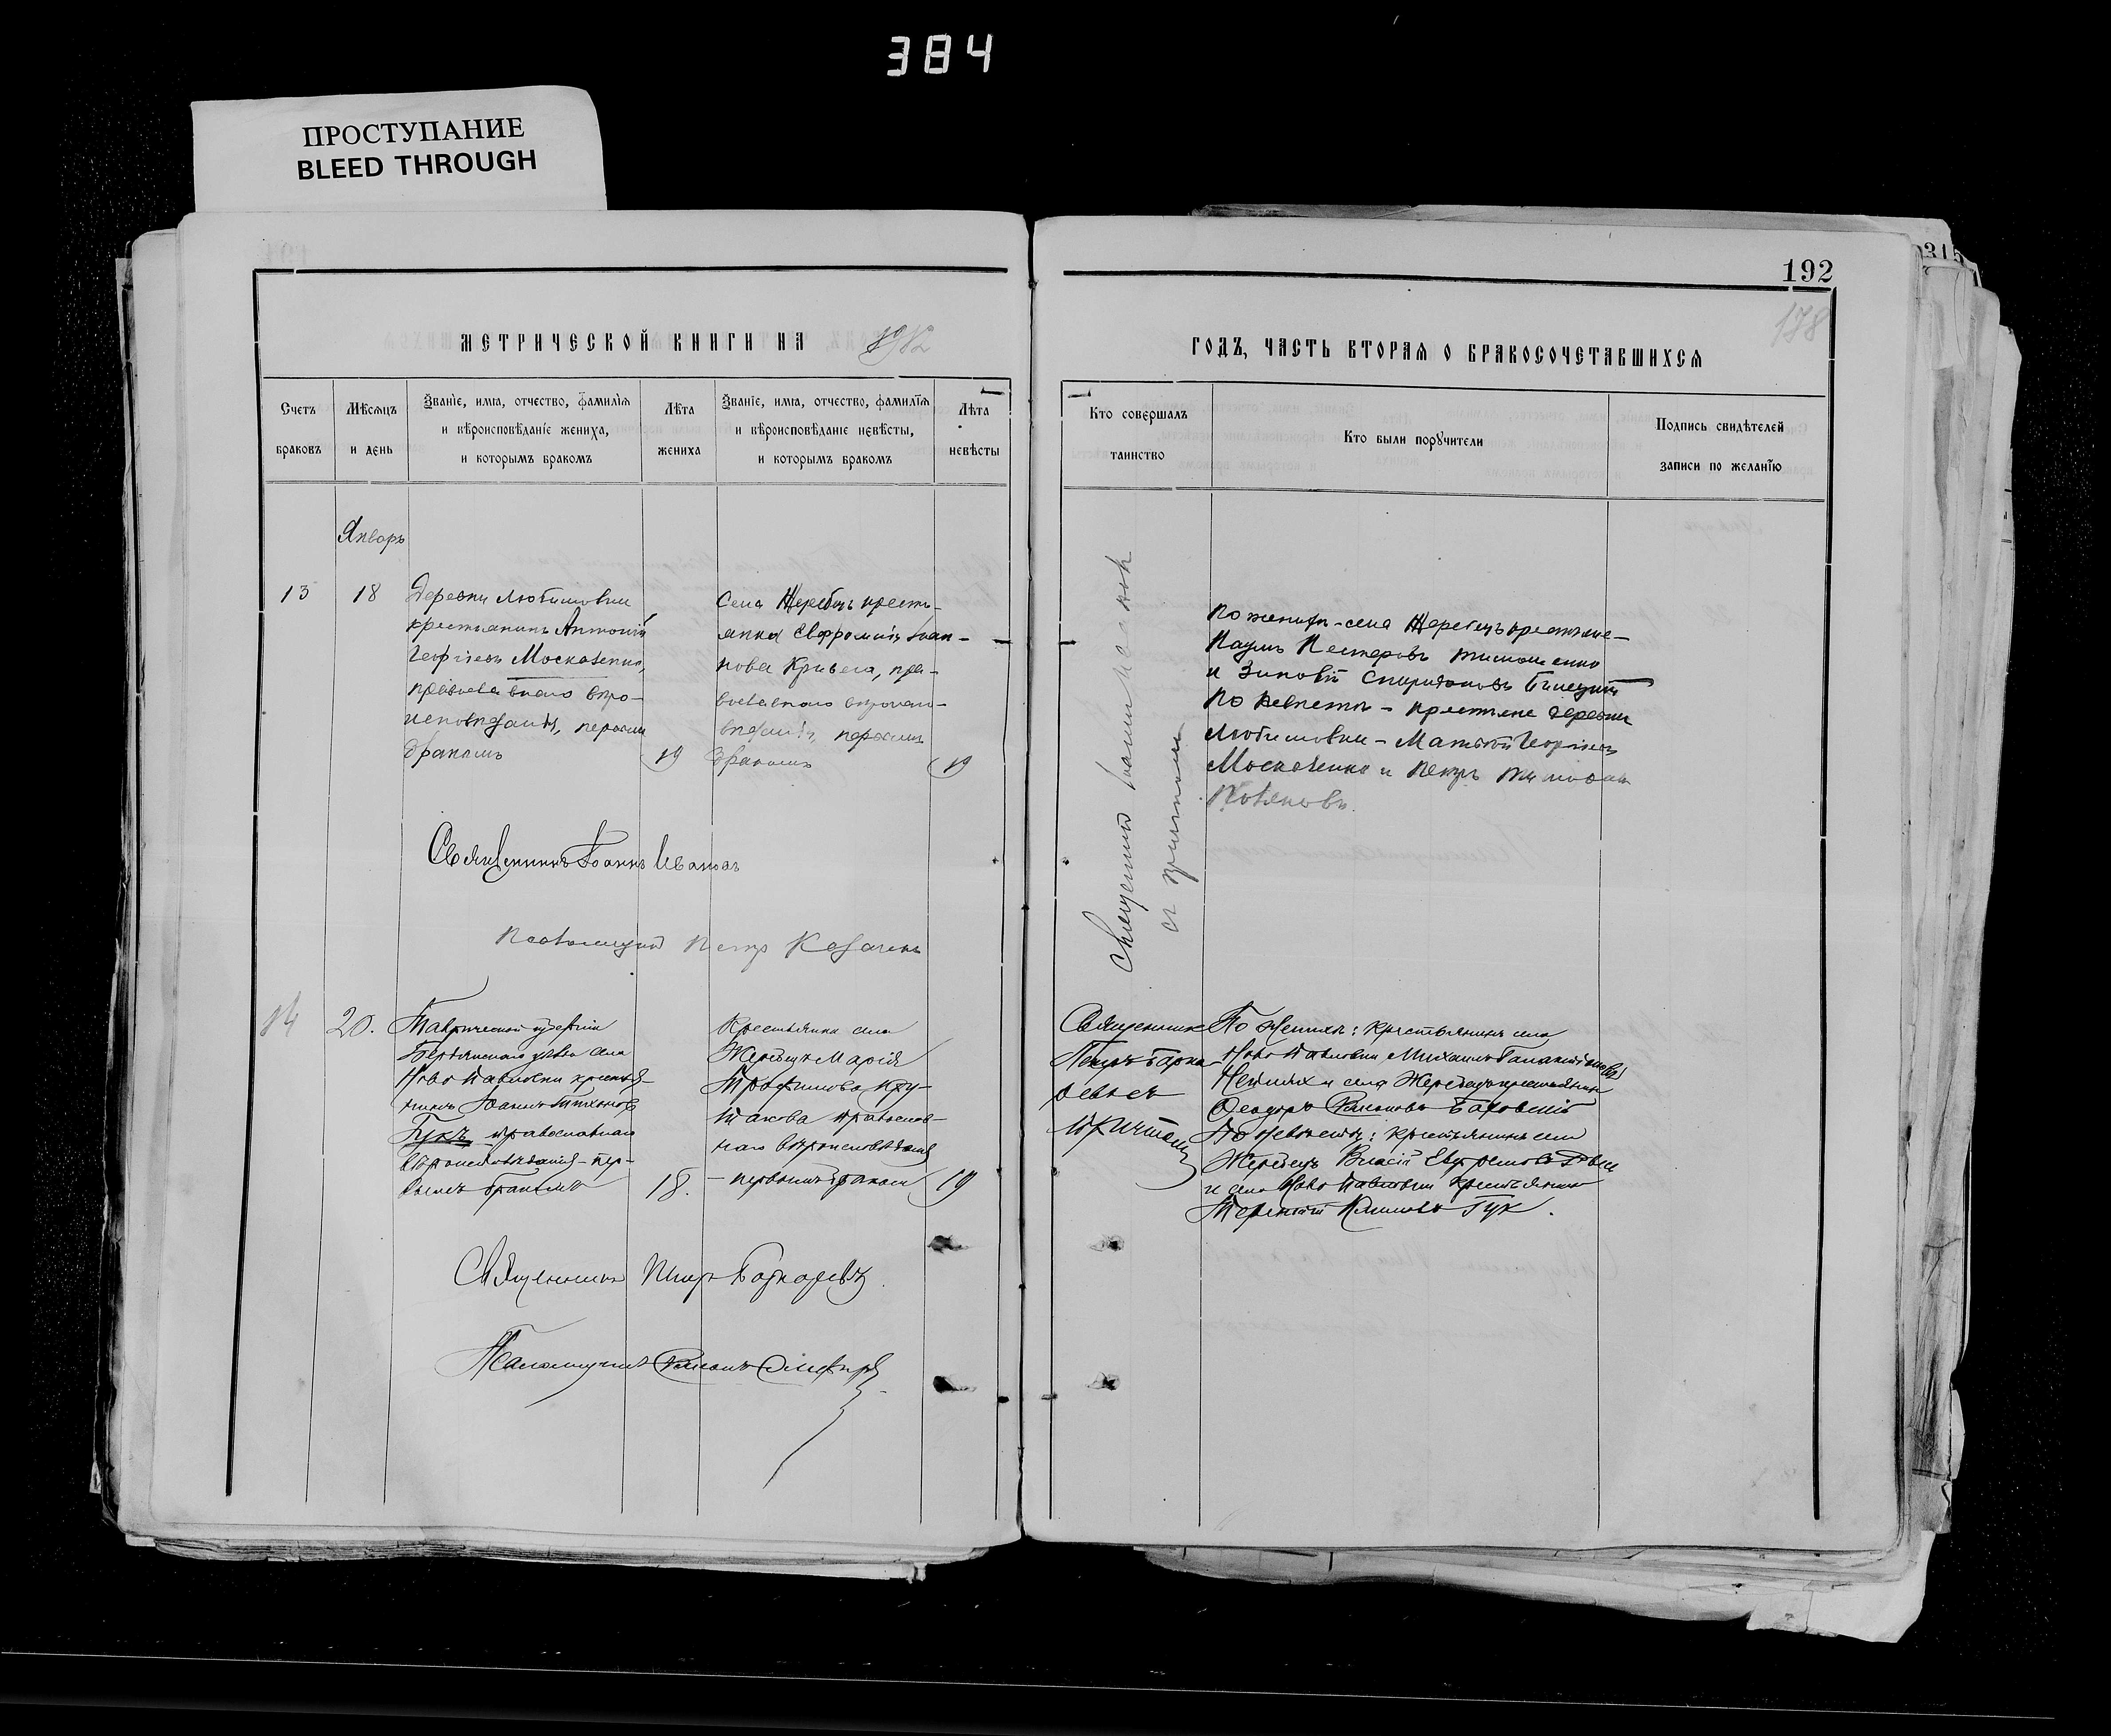 384
ПРОСТУПАНИЕ
BLEED THROUGH
192
178
МЕТРИЧЕСКОЙ КНИГИ НА 1912
ГОДЪ, ЧАСТЬ ВТОРАЯ О БРАКОСОЧЕТАВШИХСЯ
Счетъ браковъ
Мѣсяцъ и день
Званіе, имя, отчество, фамилія
и вѣроисповѣданіе жениха,
и которымъ бракомъ
Лѣта жениха
Званіе, имя, отчество, фамилія
и вѣроисповѣданіе невѣсты,
и которымъ бракомъ
Лѣта невѣсты
Кто совершалъ таинство
Кто были поручители
Подпись свидѣтелей
записи по желанію
Январь
13
18
Деревни Любимовки
крестьянинъ Антоній
Георгіевъ Москаленко,
православнаго вѣро-
исповѣданія, первымъ
бракомъ
19
Села Жеребецъ кресть-
янка Евфросинія Іоан-
нова Кривега, пра-
вославнаго вѣроиспо-
вѣданія, первымъ
бракомъ
19
Священникъ Іоаннъ
съ причтомъ
По женихѣ - села Жеребецъ крестьяне -
Наумъ Нестеровъ Тимошенко
и Зиновій Спиридоновъ
По невѣстѣ - крестьяне деревни
Любимовки - Матвѣй Георгіевъ
Москаленко и Петръ
Священникъ Іоаннъ Ивановъ
Псаломщикъ Петр Казачекъ
14
20.
Таврической губерніи
Бердянскаго уѣзда села
Ново Павловки крестья-
нинъ Іоаннъ Тихоновъ
Гукъ православнаго
вѣроисповѣданія - пер-
вымъ бракомъ
18.
Крестьянка села
Жеребецъ Марія
Трофимова Кру-
такова православ-
наго вѣроисповѣданія
- первымъ бракомъ
19
Священникъ
Петръ Барка-
ревъ съ
причтомъ
По женихѣ: крестьянинъ села
Ново Павловки Михаилъ Галактіоновъ
и села Жеребецъ крестьянинъ
Ѳеодоръ
По невѣстѣ: крестьянинъ села
Жеребецъ Власій
и села Ново Павловки крестьянинъ
Терентій Климовъ Гук.
Священникъ Петръ Баркаревъ
Псаломщикъ Симеонъ